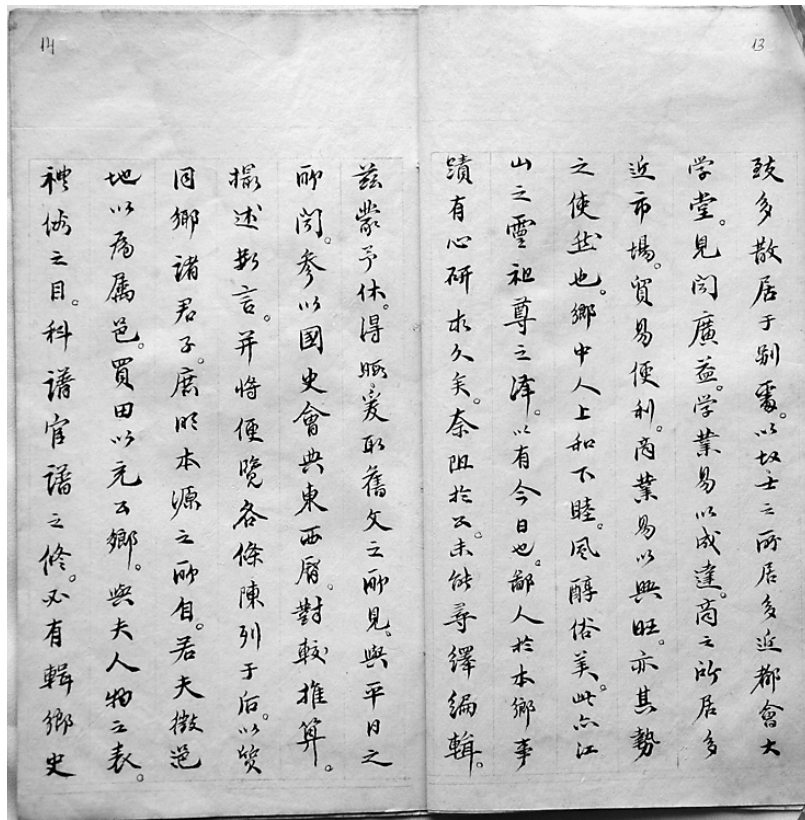 13
歧多散居于别處。以故士之所居多近都會大
学堂。見闻廣益。学業易以成達。商之所居多
近市場。貿易便利。商業易以興旺。亦其勢
之使然也。鄉中人上和下睦。風醇俗美。此亦江
山之靈祖尊之澤。以有今日也。鄙人於本鄉事
蹟有心研求久矣。奈阻於公。未能尋繹編輯。
14
茲蒙予休。得暇爰取舊文之所見。與平日之
所闻。參以國史會典東西曆。對較推算。
撮述斯言。并将便覽各條陳列于后。以質
同鄉諸君子。庶明本源之所自。若夫徵邑
地以為属邑。買田以充公鄉。與夫人物之表。
禮俗之目。科譜官譜之修。必有輯鄉史